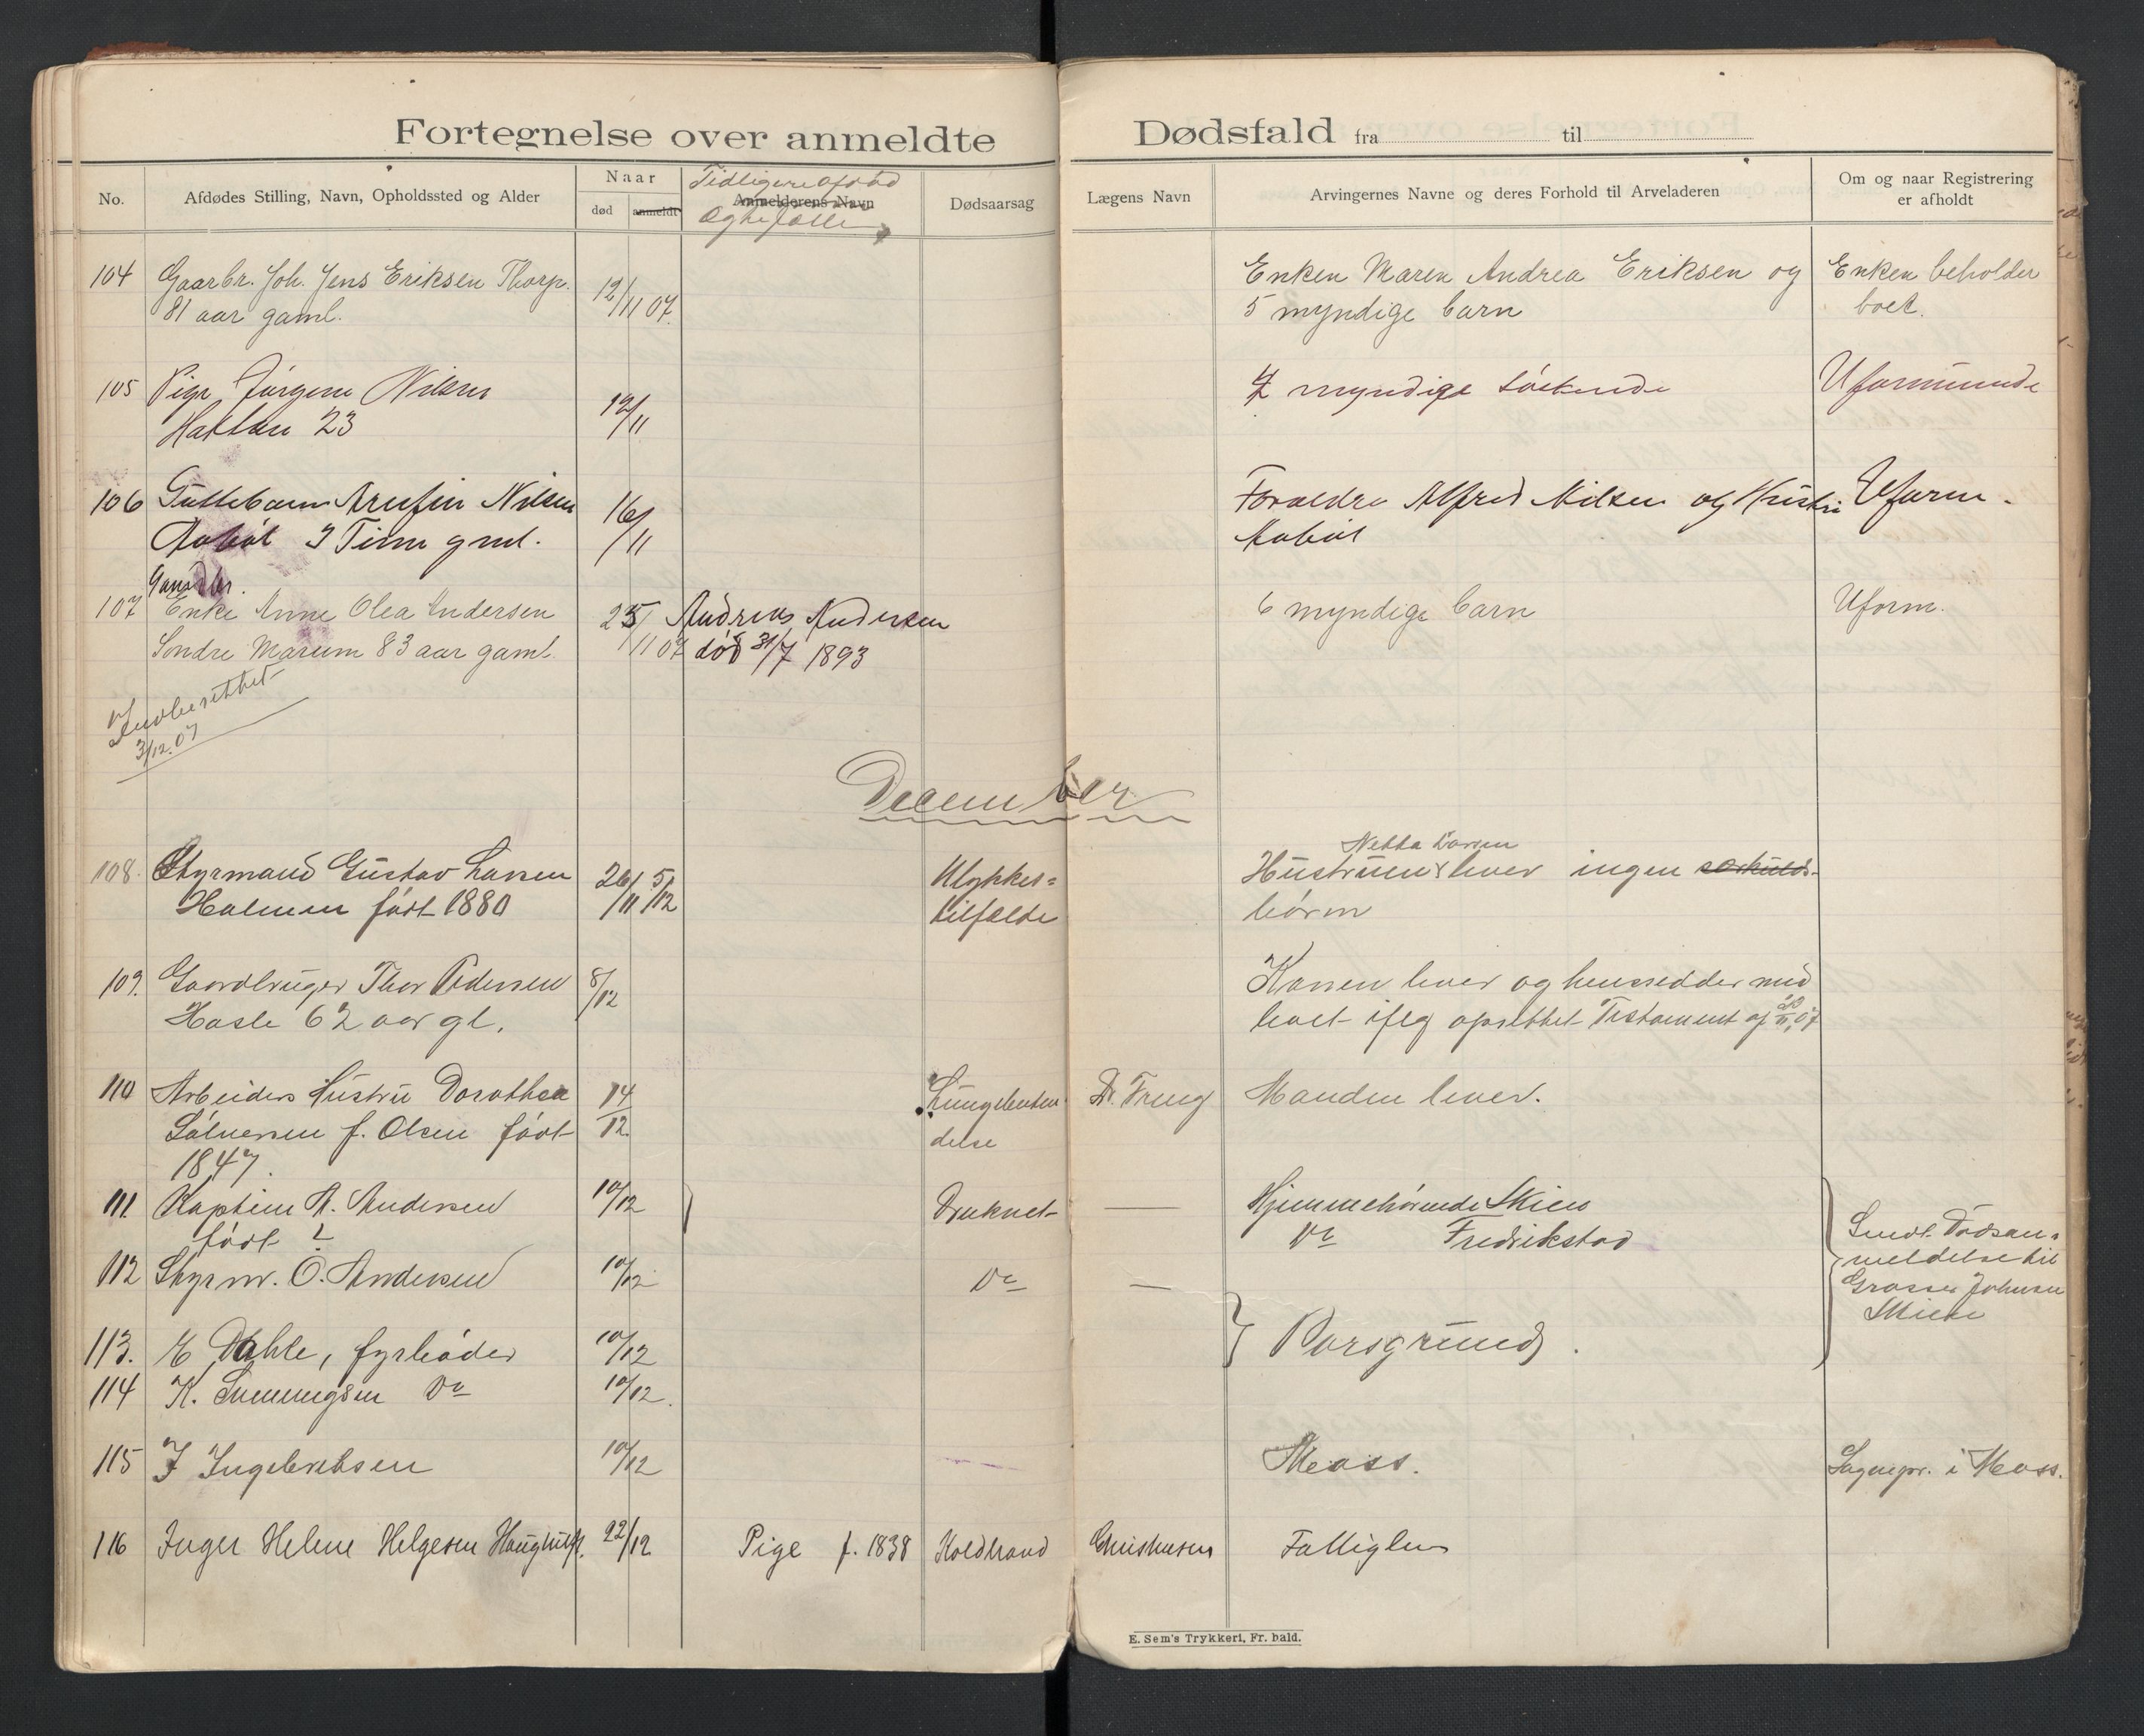 Fortegnelse over anmeldte Dødsfald fra til
No. Afdødes Stilling, Navn, Opholdssted og Alder Naar død anmeldt Anmelderens Navn Dødsaarsag Lægens Navn Arvingernes Navne og deres Forhold til Arveladeren Om og naar Registrering er afholdt
Tidligere afdød
Ægtefælle
104 Gaarbr. Joh. Jens Eriksen Thorp. 12/11 07. Enken Maren Andrea Eriksen og Enken beholder
81 aar gaml. 5 myndige barn boet.
105 Pige Jørgine Nilsen 12/11 myndige søskende Uformuende
23
106 Nilsen 16/11 Forældre Alfred Nilsen og Hustru Uform.
3 Time gml.
Gaardbr.
107 Enke Anne Olea Andersen 25/11 07 Andreas Andersen 6 myndige barn Uform.
Søndre Marum 83 aar gaml. død 31/7 1893
Indberettet
3/12.07
December
Netta Larsen
108. Styrmand Gustav Larsen 26/11 5/12 Ulykkes= Hustruen lever ingen særkulds-
Holmen født 1880 tilfælde børn
109. Gaardbruger Thor Pedersen 8/12 Konen lever og hensidder med
Hasle 62 aar gl. boet iflg oprettet Testament af
110 Arbeiders Hustru Dorothea 14/12 Lungebetæn Dr. Manden lever.
Sølversen f. Olsen født delse
1847.
111. Kaptein A. Andersen 10/12 Druknet — Hjemmehørende Skien
født ? Do Fredrikstad
112 Styrm. O. Andersen 10/12 Do —
Sendt Dødsan=
meldelse til
Grosser Johnsen
Skien
113. E Dahle, fyrbøder 10/12 Porsgrund.
114 K. Do 10/12.
115 J Ingebretsen 10/12 Moss. i Moss.
116 Inger Helene Helgesen 22/12 Pige f. 1838 Koldbrand Christensen Fattiglem
E. Sem's Trykkeri, Fr.hald.